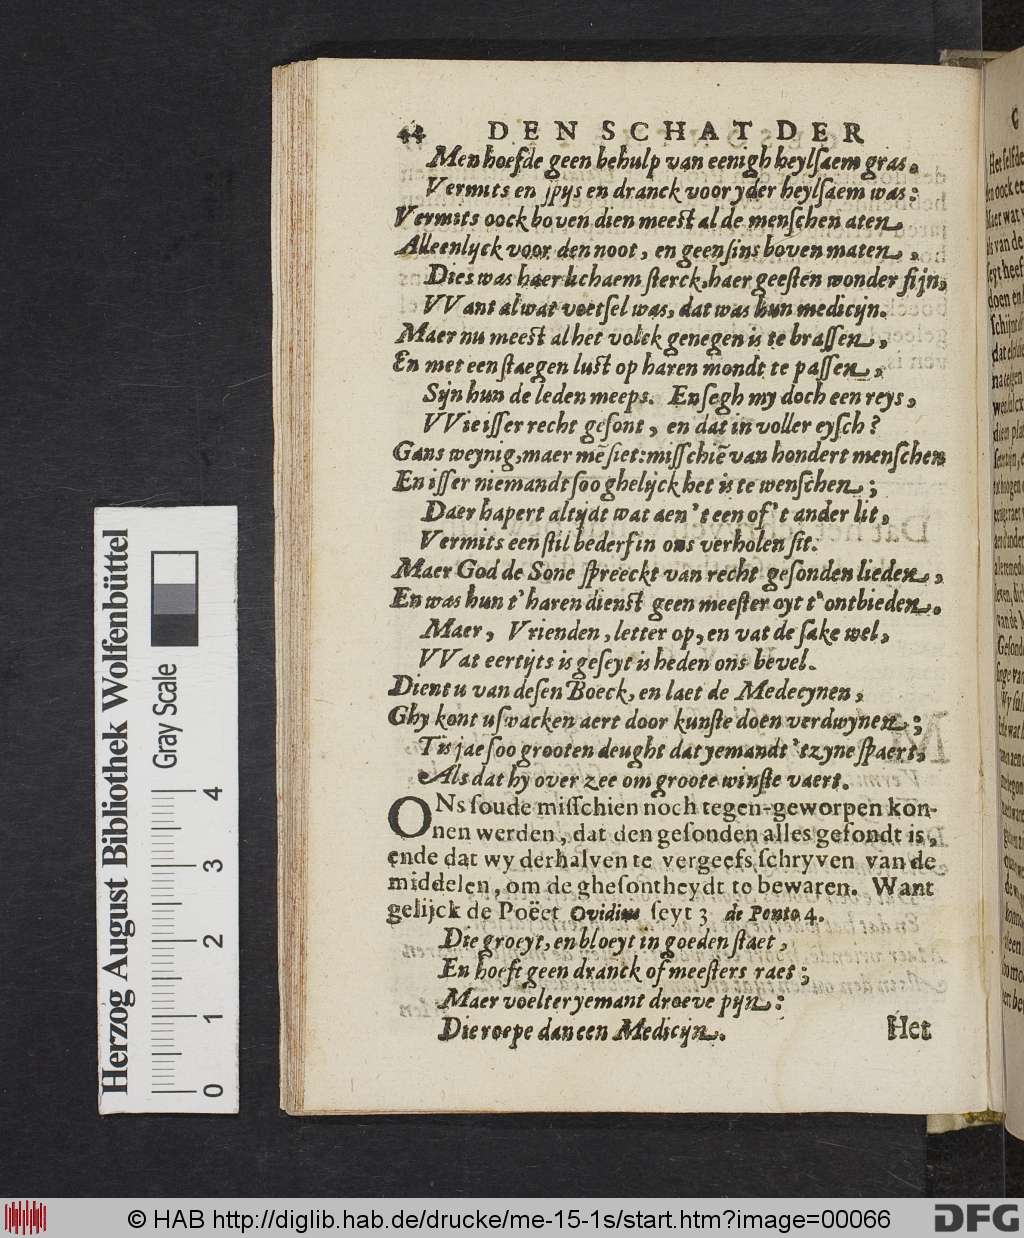 44 DEN SCHAT DER
Men hoefde geen behulp van eenigh heylſaem gras.
Vermits en ſpijs en dranck voor yder heylſaem was:
Vermits oock boven dien meest al de menſchen aten
Alleenlyck voor den noot, en geenſins boven maten,
Dies was haer lichaem ſterck, haer geeſten wonder fijn,
VVant al wat voetſel was, dat was hun medicijn.
Maer nu meest al het volck genegen is te braſſen,
En met een ſtaegen lust op haren mondt te paſſen,
Sijn hun de leden meeps. En ſegh my doch een reys,
VVie iſſer recht geſont, en dat in voller eyſch?
Gans weynig, maer mē ſiet: miſſchiē van hondert menſchen
En iſſer niemandt ſoo ghelijck het is te wenſchen;
Daer hapert altijdt wat aen 't een of 't ander lit,
Vermits een ſtil bederf in ons verholen ſit.
Maer God de Sone ſpreeckt van recht geſonden lieden,
En was hun t' haren dienst geen meeſter oyt t' ontbieden.
Maer, Vrienden, letter op, en vat de ſake wel,
VVat eertijts is geſeyt is heden ons bevel.
Dient u van deſen Boeck, en laet de Medecynen,
Ghy kont uſwacken aert door kunſte doen verdwynen;
Tis jae ſoo grooten deught dat yemandt 't zyne ſpaert,
Als dat hy over zee om groote winſte vaert.
ONs ſoude miſſchien noch tegen-geworpen kon-
nen werden, dat den geſonden alles geſondt is,
ende dat wy derhalven te vergeefs ſchryven van de
middelen, om de gheſontheydt to bewaren. Want
gelijck de Poëet Ovidius ſeyt 3 de Ponto 4.
Die groeyt, en bloeyt in goeden ſtaet,
En hoeft geen dranck of meeſters raet;
Maer voelter yemant droeve pijn:
Die roepe dan een Medicijn.
Het
Herzog August Bibliothek Wolfenbüttel
Gray Scale
0 1 2 3 4
© HAB http://diglib.hab.de/drucke/me-15-1s/start.htm?image=00066
DFG